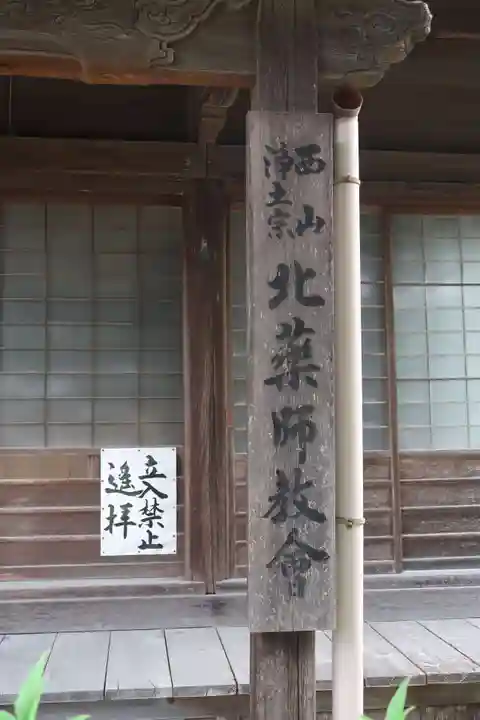 西山
浄土宗
北薬師教會
立入禁止
遙拝